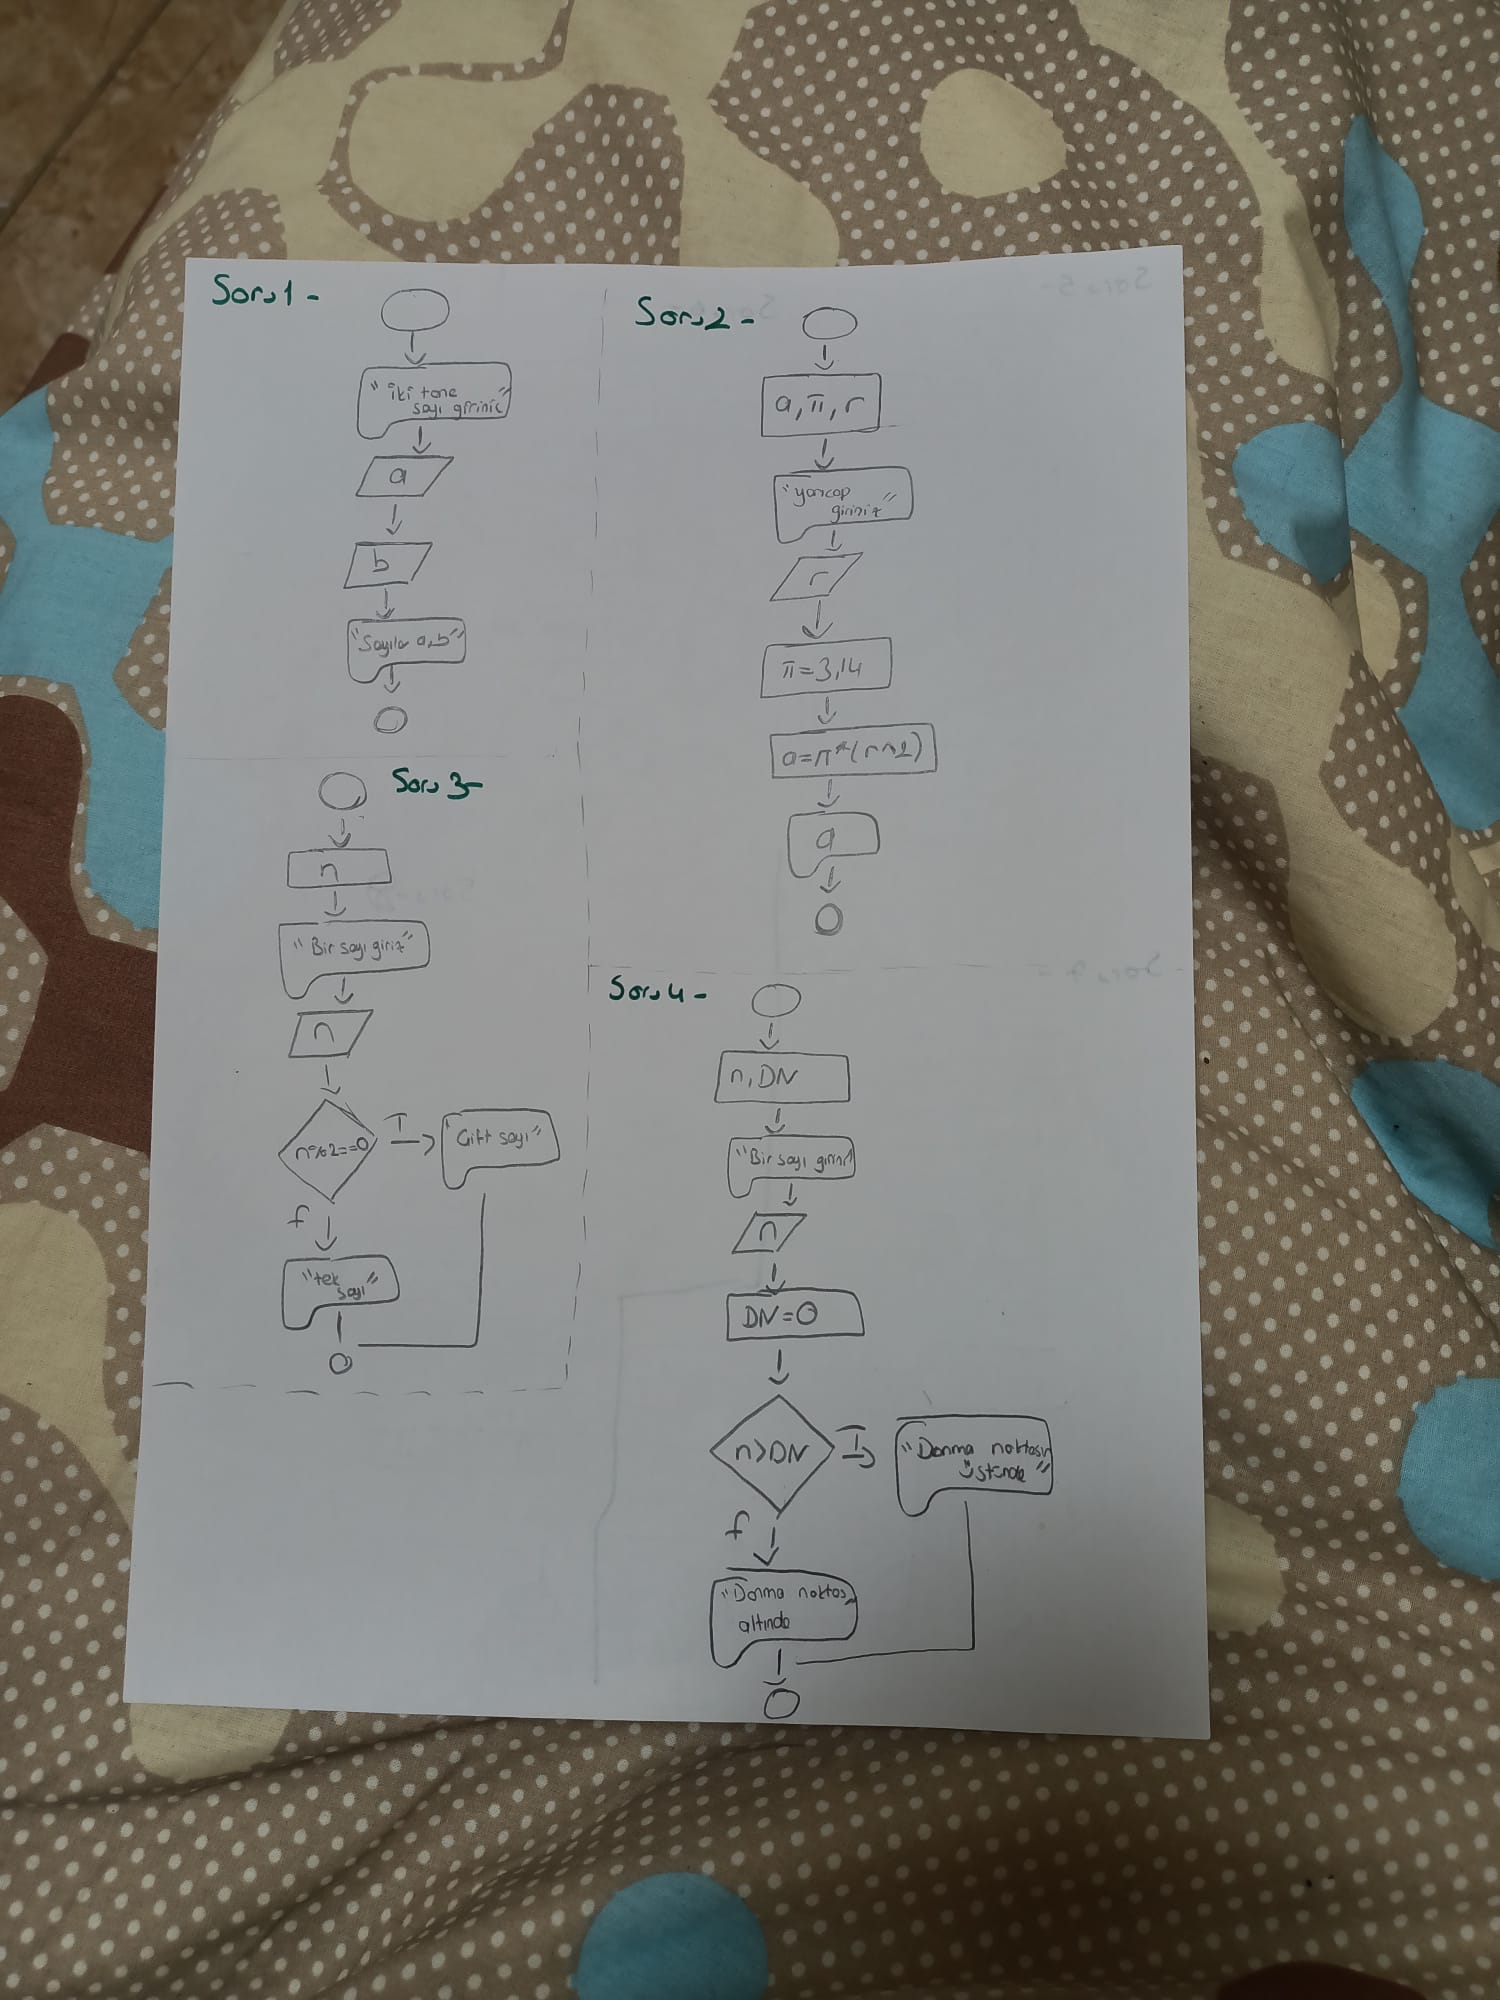 Soru 1 -
"iki tane
sayı giriniz"
a
b
"Sayılar a,b"
Soru 2 -
a, π, r
"yarıcap
giriniz"
r
π=3,14
a=π*(r^2)
a
Soru 3-
n
"Bir sayı giriz"
n
n%2==0
T
"Çift sayı"
f
"tek
sayı"
Soru 4 -
n, DN
"Bir sayı giriniz"
n
DN=0
n>DN
T
"Donma noktası
üstünde"
f
"Donma noktası
altında